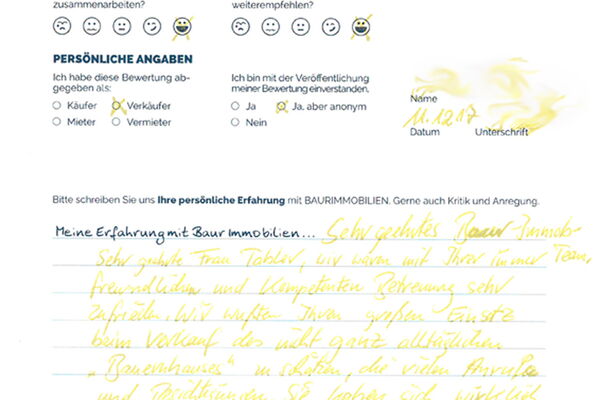 zusammenarbeiten?
weiterempfehlen?
PERSÖNLICHE ANGABEN
Ich habe diese Bewertung ab-
gegeben als:
Käufer
Verkäufer
Mieter
Vermieter
Ich bin mit der Veröffentlichung
meiner Bewertung einverstanden.
Ja
Ja, aber anonym
Nein
Name
11.12.17
Datum
Unterschrift
Bitte schreiben Sie uns Ihre persönliche Erfahrung mit BAURIMMOBILIEN. Gerne auch Kritik und Anregung.
Meine Erfahrung mit Baur Immobilien... Sehr geehrtes Baur-Immob-
Sehr geehrte Frau Tabler, wir waren mit Ihrer immer Team,
freundlichen und kompetenten Betreuung sehr
zufrieden. Wir wußten Ihren großen Einsatz
beim Verkauf des nicht ganz alltäglichen
„Bauernhauses" zu schätzen, die vielen Anrufe
und Besichtigungen. Sie haben sich wirklich